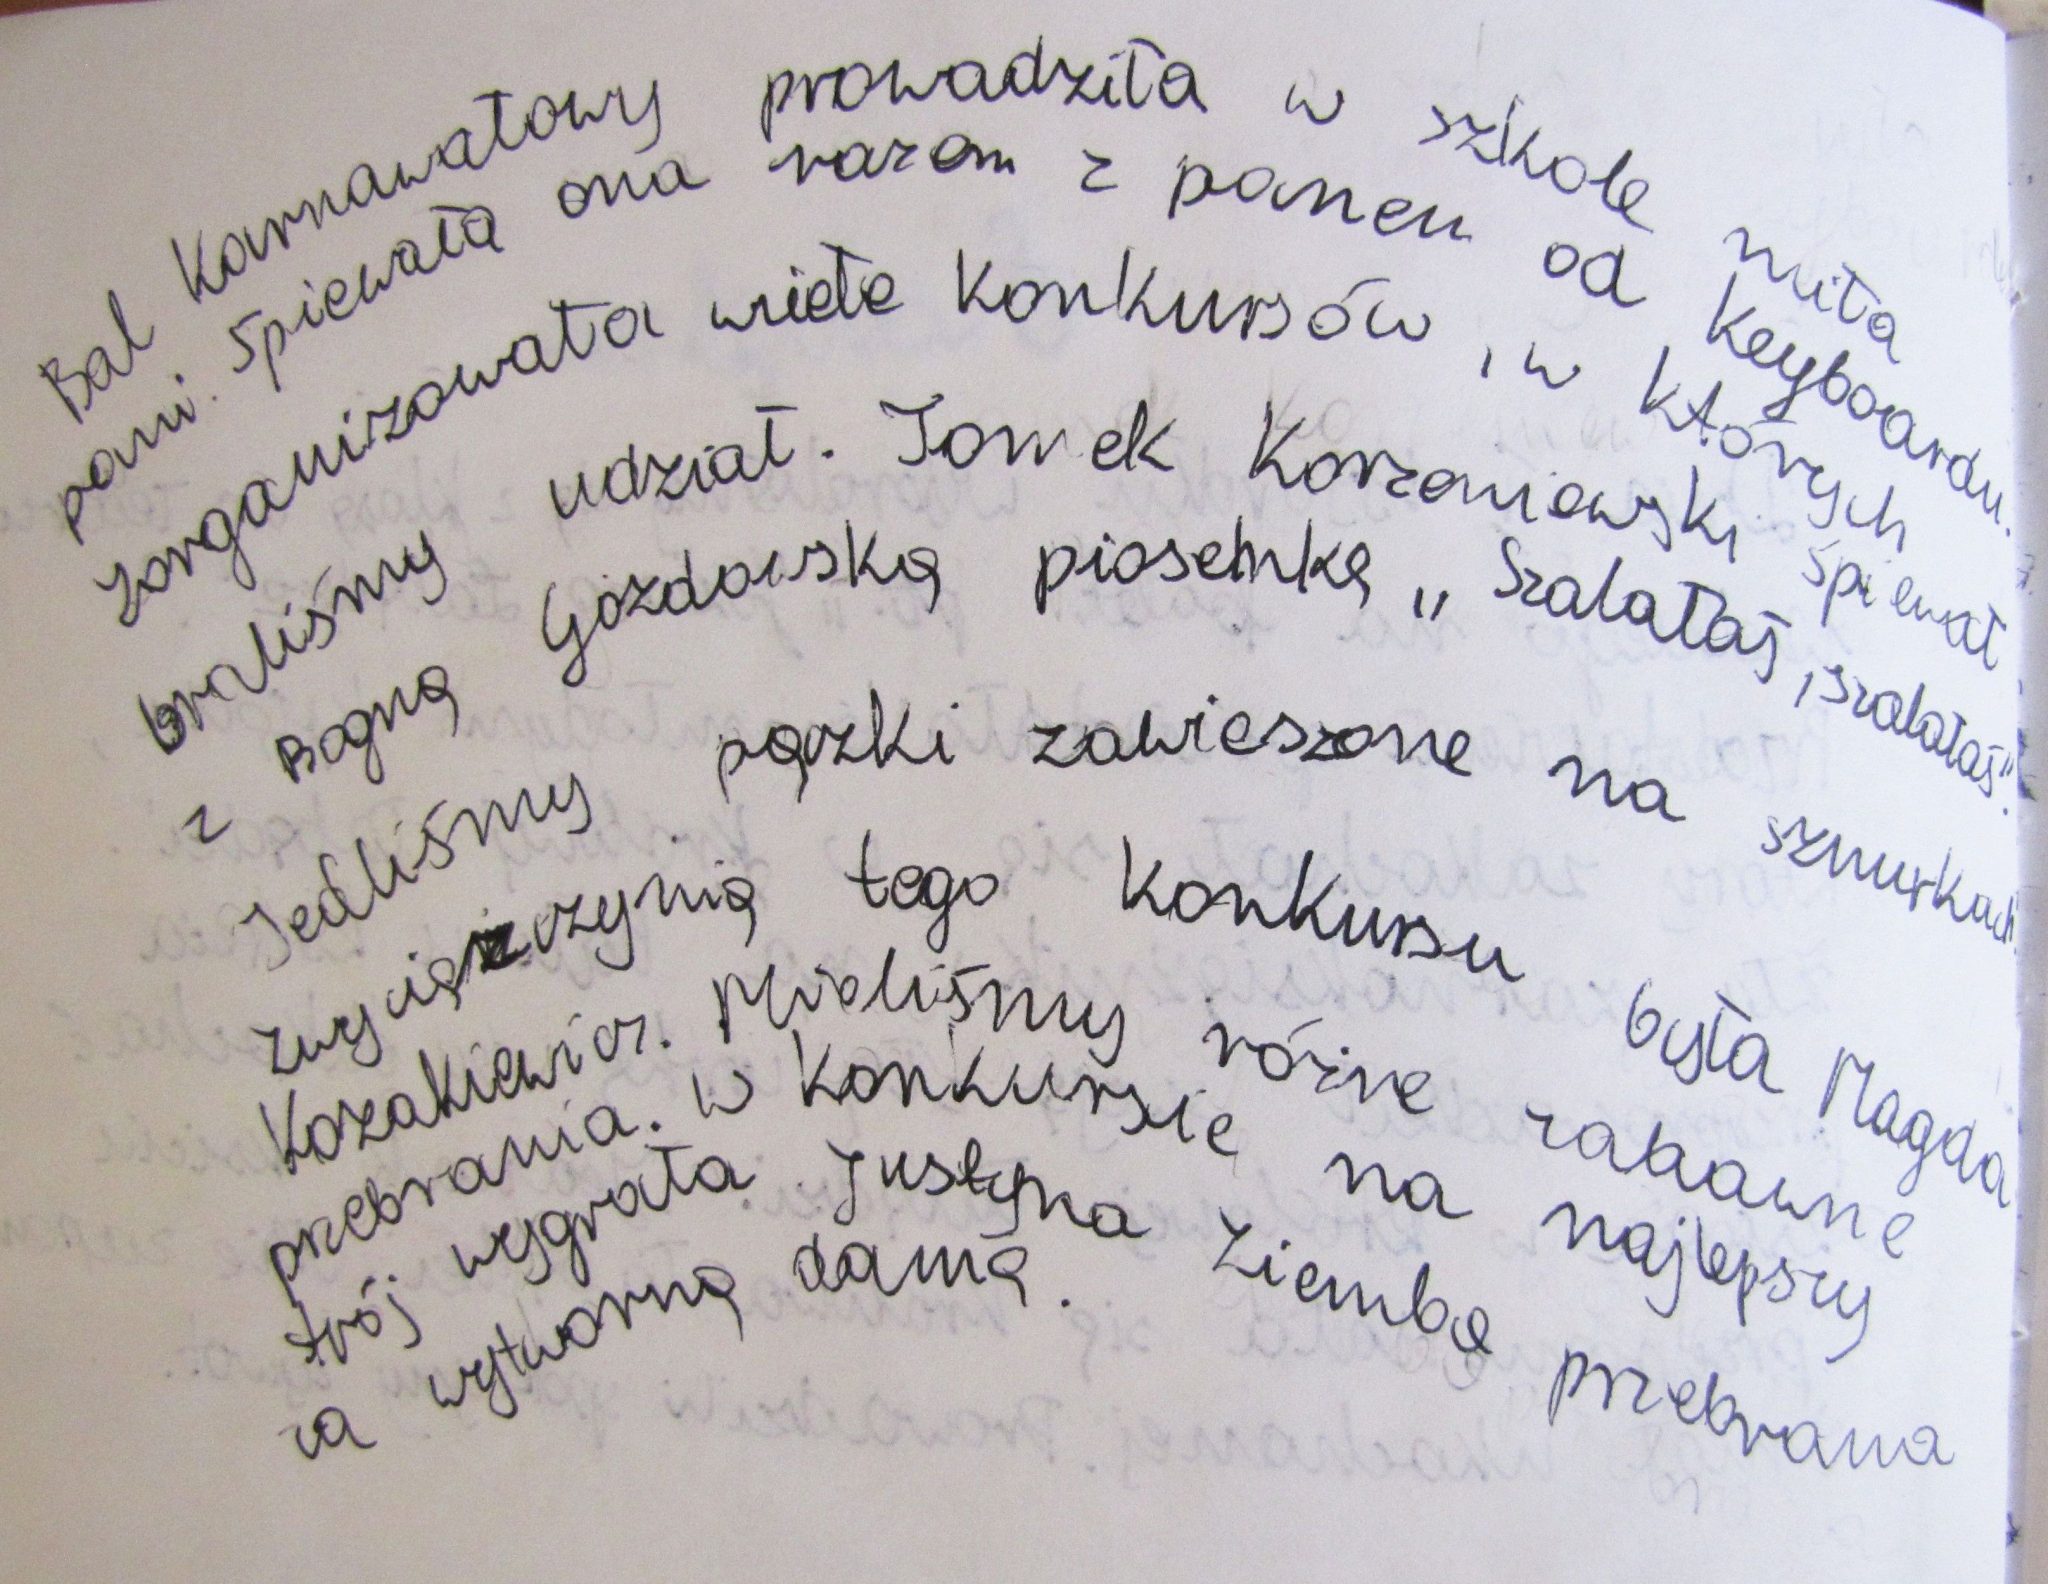 Bal Karnawałowy prowadziła w szkole miła
pani. Śpiewała ona razem z panem od Keyboardu.
Zorganizowała wiele konkursów, w których
braliśmy udział. Tomek Korzeniewski śpiewał
z Bogną Gozdowską piosenkę „Szalałaś, szalałaś".
Jedliśmy pączki zawieszone na sznurkach.
Zwyciężczynią tego konkursu była Magda
Kozakiewicz. Mieliśmy różne zabawne
przebrania. W konkursie na najlepszy
strój wygrała Justyna Ziemba przebrana
za wytworną damę.